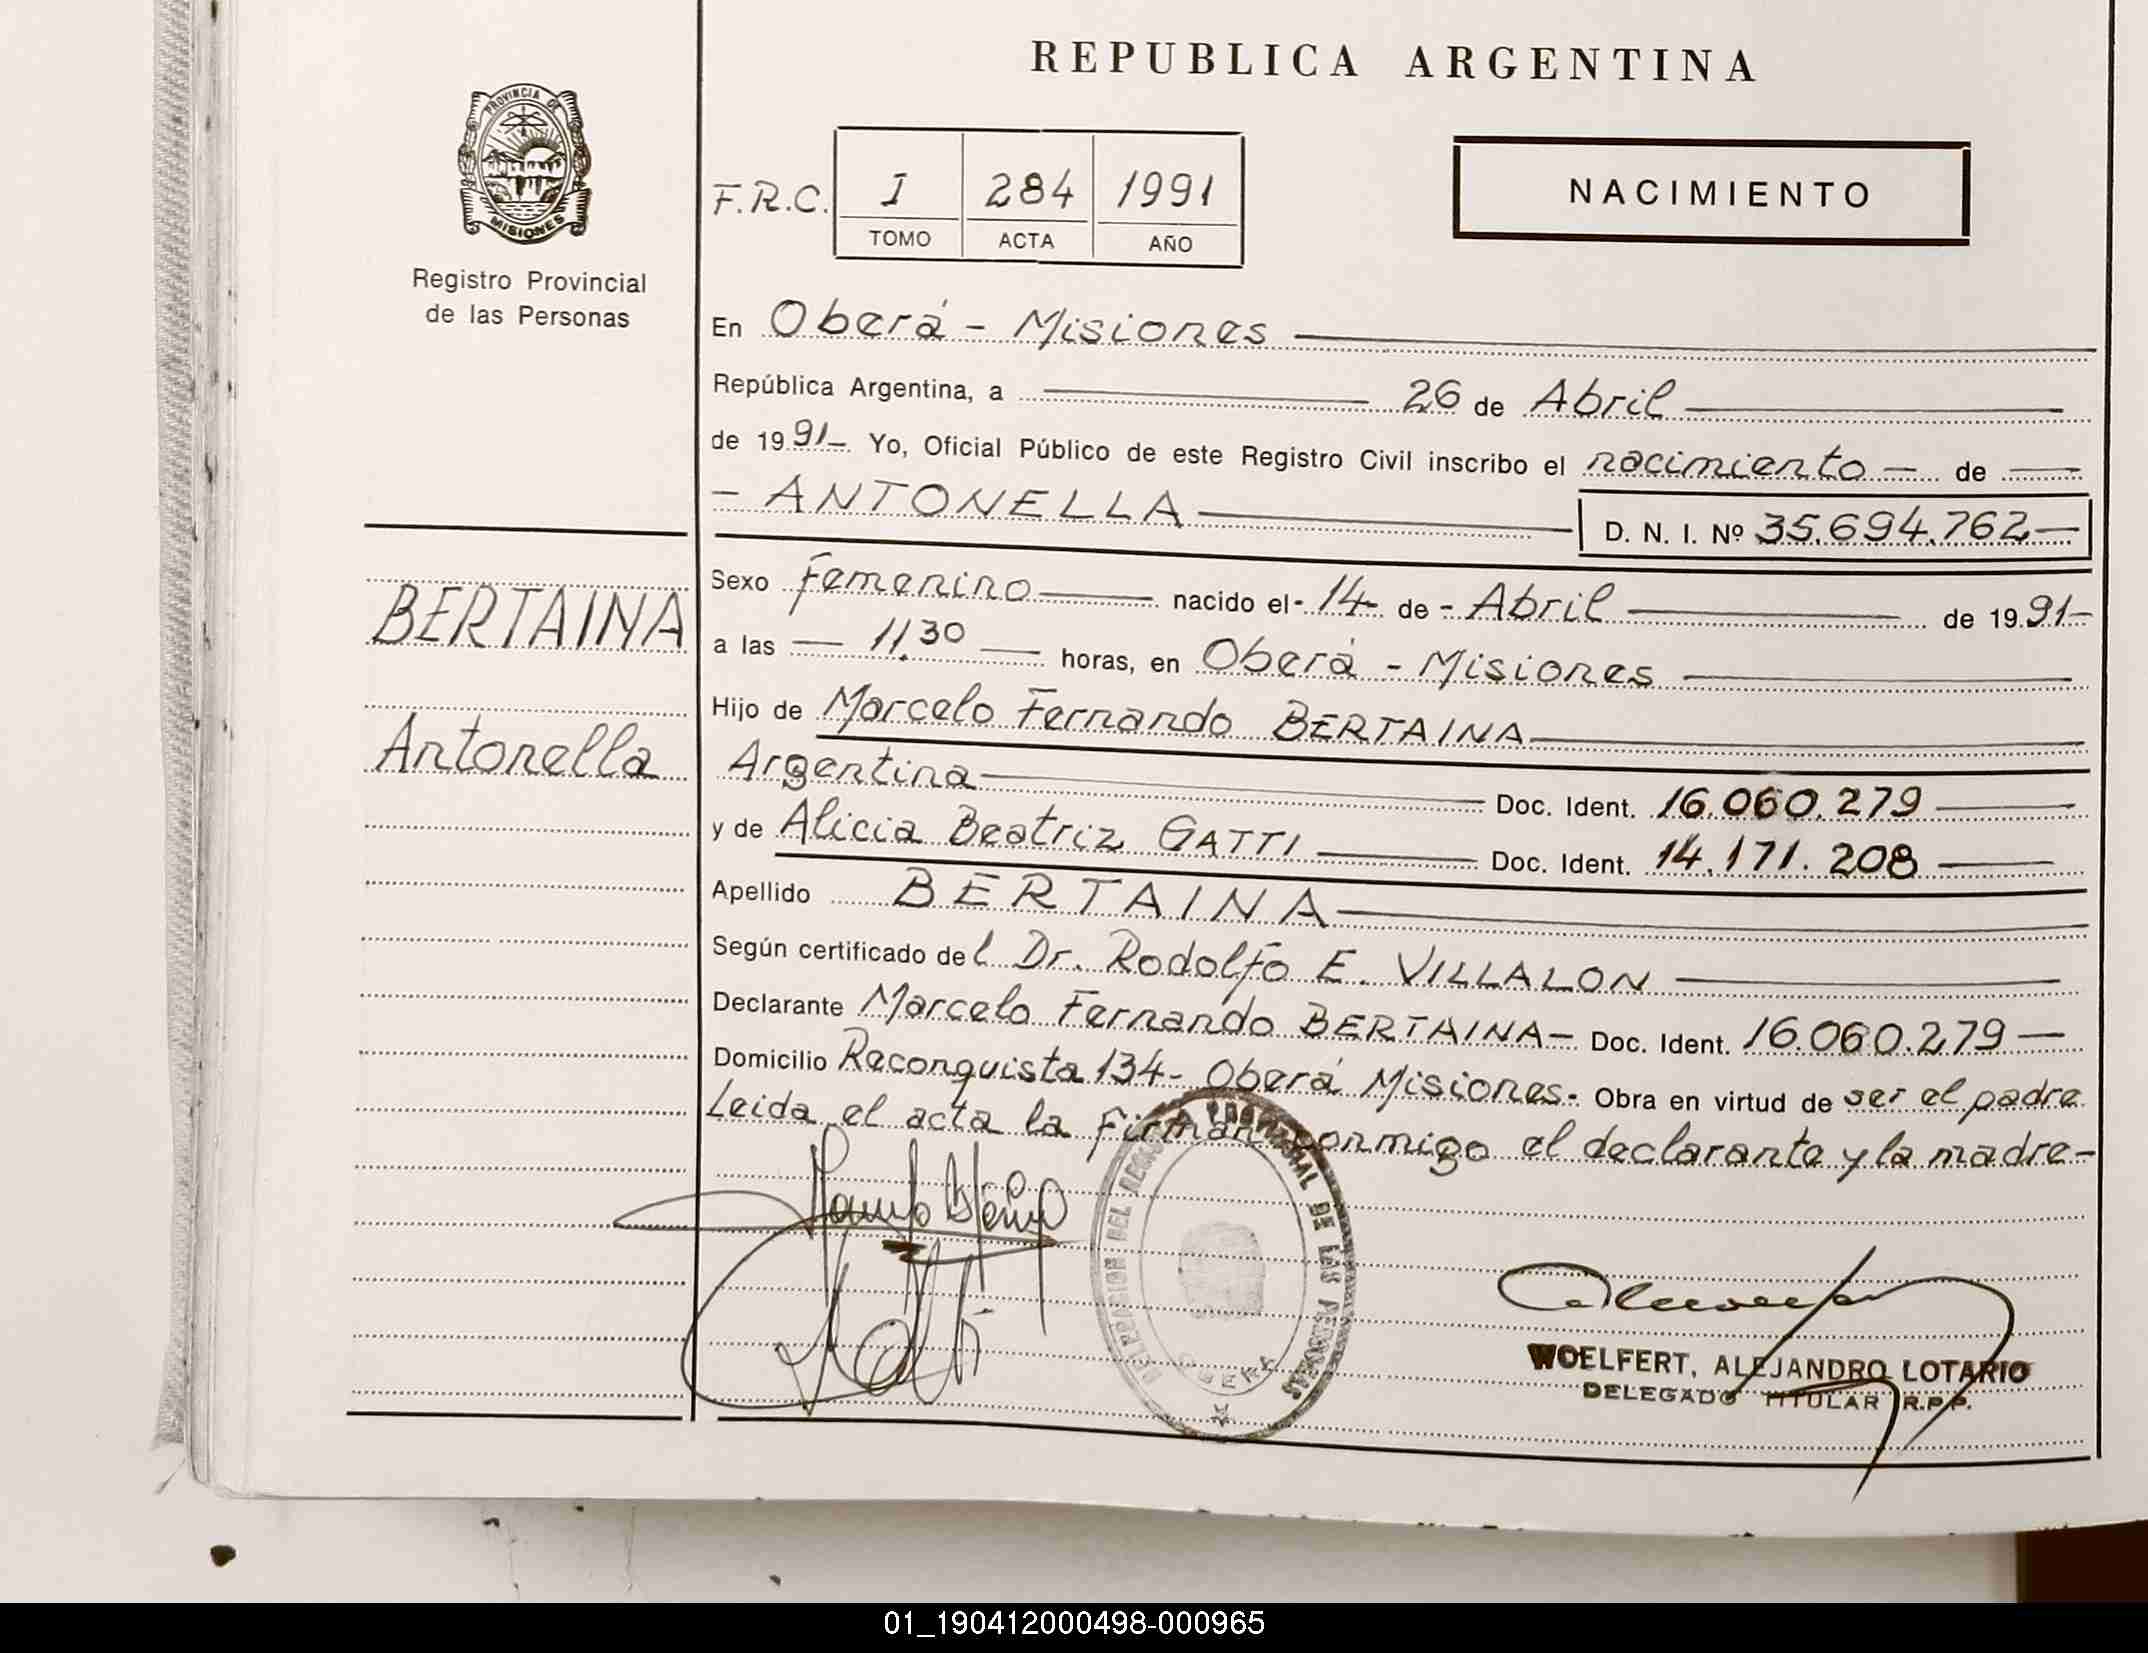 REPUBLICA ARGENTINA
PROVINCIA DE
MISIONES
Registro Provincial
de las Personas
F.R.C. I 284 1991
TOMO ACTA AÑO
NACIMIENTO
En Oberá - Misiones
República Argentina, a 26 de Abril
de 1991 Yo, Oficial Público de este Registro Civil inscribo el nacimiento de
- ANTONELLA D. N. I. Nº 35.694.762
BERTAINA
Antonella
Sexo Femenino nacido el 14 de Abril de 1991
a las 11.30 horas, en Oberá - Misiones
Hijo de Marcelo Fernando BERTAINA
Argentina Doc. Ident. 16.060.279
y de Alicia Beatriz GATTI Doc. Ident. 14.171.208
Apellido BERTAINA
Según certificado del Dr. Rodolfo E. VILLALON
Declarante Marcelo Fernando BERTAINA Doc. Ident. 16.060.279
Domicilio Reconquista 134 - Oberá Misiones. Obra en virtud de ser el padre
Leida el acta la firman conmigo el declarante y la madre
DELEGACION DEL REGISTRO PROVINCIAL DE LAS PERSONAS
OBERA
WOELFERT, ALEJANDRO LOTARIO
DELEGADO TITULAR R.P.P.
01_190412000498-000965